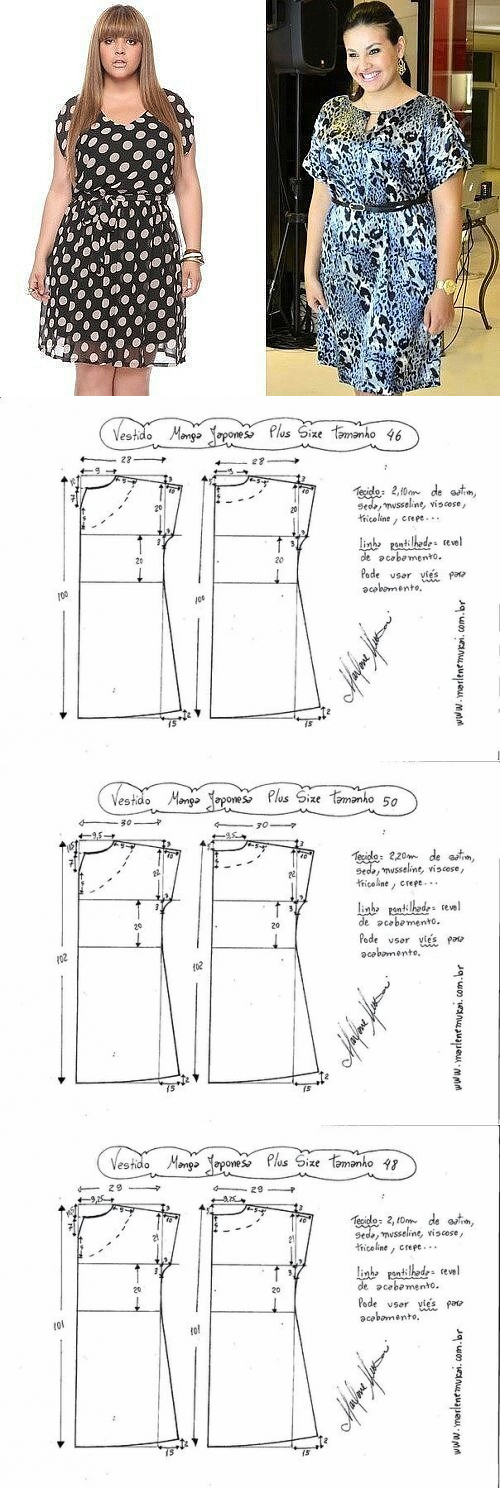 Vestido Manga Japonesa Plus Size Tamanho 46
28
28
9
9
3
3
5
5
10
10
7
20
20
3
3
3
3
20
20
100
100
2
2
15
15
Tecido= 2,10m de cetim,
seda, musseline, viscose,
tricoline, crepe...
linha pontilhada= revel
de acabamento.
Pode usar viés para
acabamento.
www.marlenemukai.com.br
Vestido Manga Japonesa Plus Size Tamanho 50
30
30
9,5
9,5
3
3
5
5
10
10
7
22
22
3
3
20
20
102
102
2
2
15
15
Tecido= 2,20m de cetim,
seda, musseline, viscose,
tricoline, crepe...
linha pontilhada= revel
de acabamento.
Pode usar viés para
acabamento.
www.marlenemukai.com.br
Vestido Manga Japonesa Plus Size Tamanho 48
29
29
9,25
9,25
3
3
5
5
10
10
7
21
21
3
3
20
20
101
101
2
2
15
15
Tecido= 2,10m de cetim,
seda, musseline, viscose,
tricoline, crepe...
linha pontilhada= revel
de acabamento.
Pode usar viés para
acabamento.
www.marlenemukai.com.br